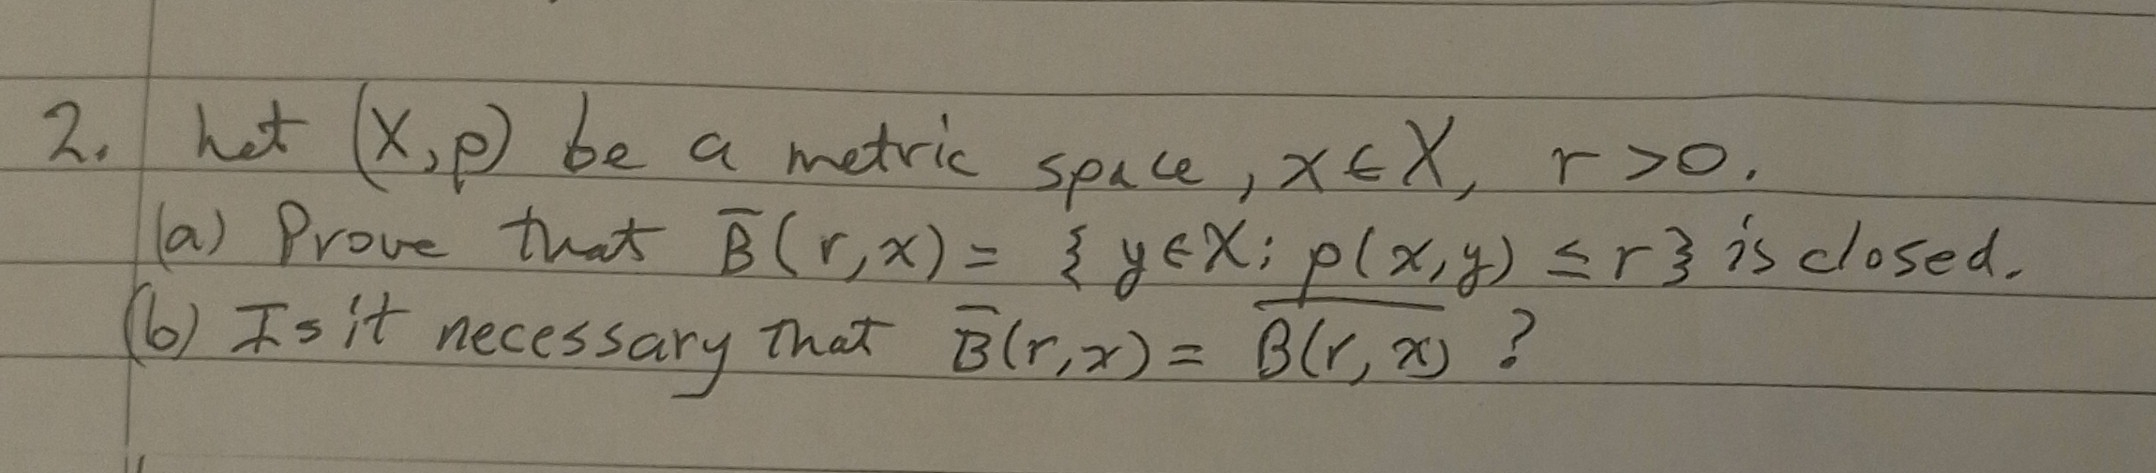 2. Let (X,ρ) be a metric space, x∈X, r>0.
(a) Prove that B̅(r,x) = {y∈X; ρ(x,y) ≤ r} is closed.
(b) Is it necessary that B̅(r,x) = \overline{B(r,x)} ?